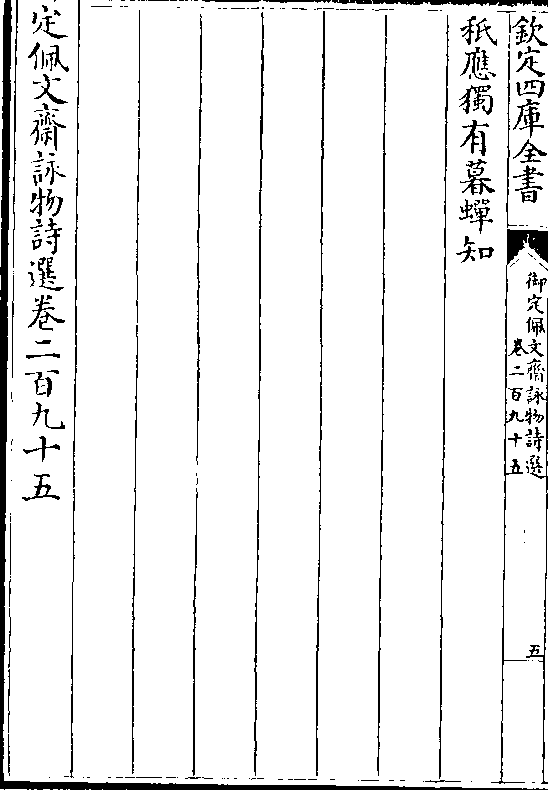 欽定四庫全書
御定佩文齋詠物詩選
卷二百九十五
五
秖應獨有暮蟬知
定佩文齋詠物詩選卷二百九十五